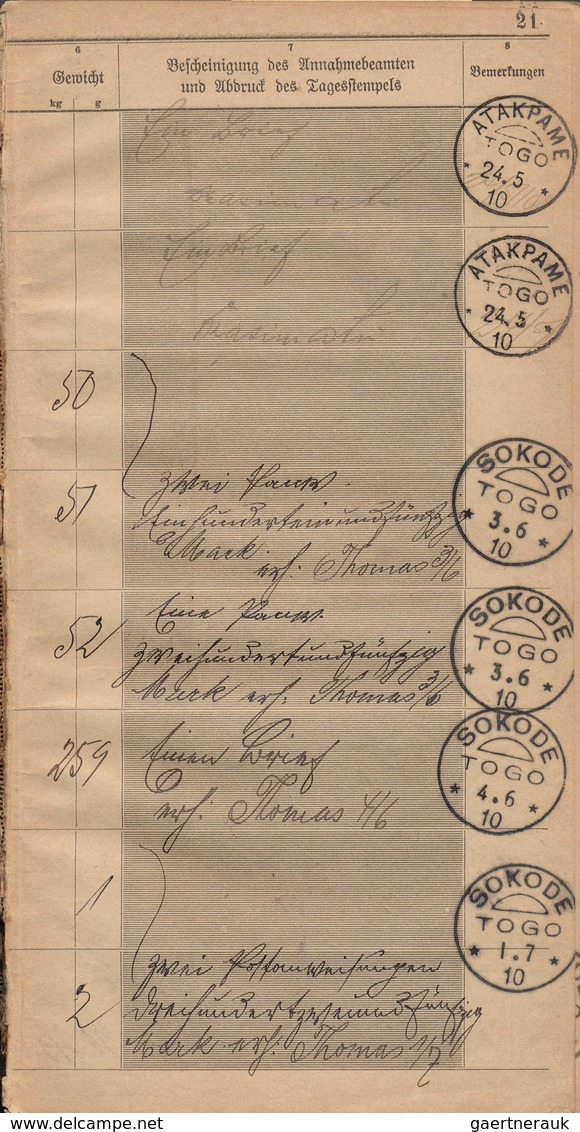 21
6
7
8
Gewicht
Bescheinigung des Annahmebeamten
und Abdruck des Tagesstempels
Bemerkungen
kg g
Ein Brief
ATAKPAME
TOGO
* 24.5 *
10
Ein Brief
ATAKPAME
TOGO
* 24.5 *
10
50
51
zwei Panw.
Einhunderteinundfünfzig
Mark.
erh: Thomas 3/6
SOKODE
TOGO
* 3.6 *
10
52
Eine Panw.
zweihundertundfünfzig
Mark erh. Thomas 3/6
SOKODE
TOGO
* 3.6 *
10
259
Einen Brief
erh: Thomas 4/6
SOKODE
TOGO
* 4.6 *
10
1
2
zwei Postanweisungen
Dreihundertzweiundfünfzig
Mark erh: Thomas 1/7
SOKODE
TOGO
* 1.7 *
10
gaertnerauk